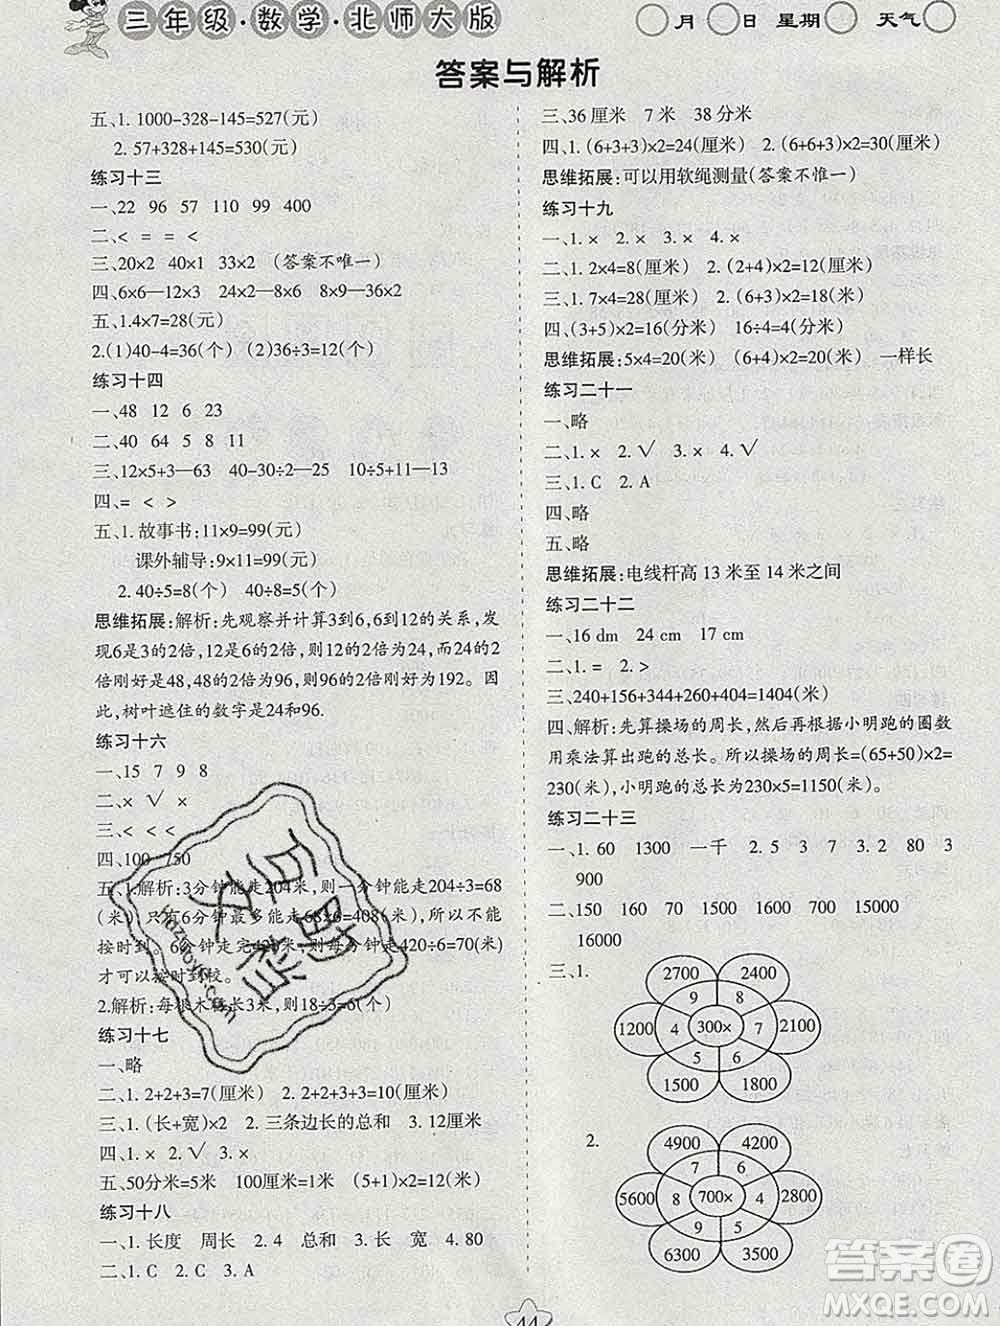 三年级·数学·北师大版
月 日 星期 天气
答案与解析
五、1. 1000-328-145=527(元)
2. 57+328+145=530(元)
练习十三
一、22 96 57 110 99 400
二、< = = <
三、20×2 40×1 33×2 (答案不唯一)
四、6×6—12×3 24×2—8×6 8×9—36×2
五、1.4×7=28(元)
2.(1)40-4=36(个) (2)36÷3=12(个)
练习十四
一、48 12 6 23
二、40 64 5 8 11
三、12×5+3—63 40÷8—5 10÷5+11—13
四、= < >
五、1. 故事书:11×9=99(元)
课外辅导:9×11=99(元)
2. 40÷5=8(个) 40÷8=5(个)
思维拓展:解析:先观察并计算3到6,6到12的关系,发
现6是3的2倍,12是6的2倍,则12的2倍为24,而24的2
倍刚好是48,48的2倍为96,则96的2倍刚好为192。因
此,树叶遮住的数字是24和96.
练习十六
一、15 7 9 8
二、× √ ×
三、< < <
四、100 750
五、1.解析:3分钟能走204米,则一分钟能走204÷3=68
(米),只有6分钟最多能走68×6=408(米),所以不能
按时到。6分钟走完420米,则每分钟走420÷6=70(米)
才可以按时到校。
2.解析:每根木桩长3米,则18÷3=6(个)
练习十七
一、略
二、1. 2+2+3=7(厘米) 2. 2+2+3+3=10(厘米)
三、1. (长+宽)×2 2. 三条边长的总和 3. 12厘米
四、1. × 2. √ 3. ×
五、50分米=5米 100厘米=1米 (5+1)×2=12(米)
练习十八
一、1. 长度 周长 2. 4 总和 3. 长 宽 4. 80
二、1. C 2. C 3. A
三、36厘米 7米 38分米
四、1. (6+3+3)×2=24(厘米) 2. (6+6+3)×2=30(厘米)
思维拓展:可以用软绳测量(答案不惟一)
练习十九
一、1. × 2. × 3. × 4. ×
二、1. 2×4=8(厘米) 2. (2+4)×2=12(厘米)
三、1. 7×4=28(厘米) 2. (6+3)×2=18(厘米)
四、(3+5)×2=16(分米) 16÷4=4(分米)
思维拓展:5×4=20(厘米) (6+4)×2=20(厘米) 一样长
练习二十一
一、略
二、1. × 2. √ 3. × 4. √
三、1. C 2. A
四、略
五、略
思维拓展:电线杆高 13 米至 14 米之间
练习二十二
一、16 dm 24 cm 17 cm
二、1. = 2. >
三、240+156+344+260+404=1404(厘米)
四、解析:先算操场的周长,然后再根据小明跑的圈数
用乘法算出跑的总长。所以操场的周长=(65+50)×2=
230(米),小明跑的总长为230×5=1150(米)。
练习二十三
一、1. 60 1300 一千 2. 5 3 7 3. 2 80 3
900
二、150 160 1500 1600 15000 15000
16000
三、1.
2700 2400
9 8
1200 4 300× 7 2100
5 6
1500 1800
2.
4900 4200
7 6
5600 8 700× 4 2800
9 5
6300 3500
44
答案圈
MXQE.COM